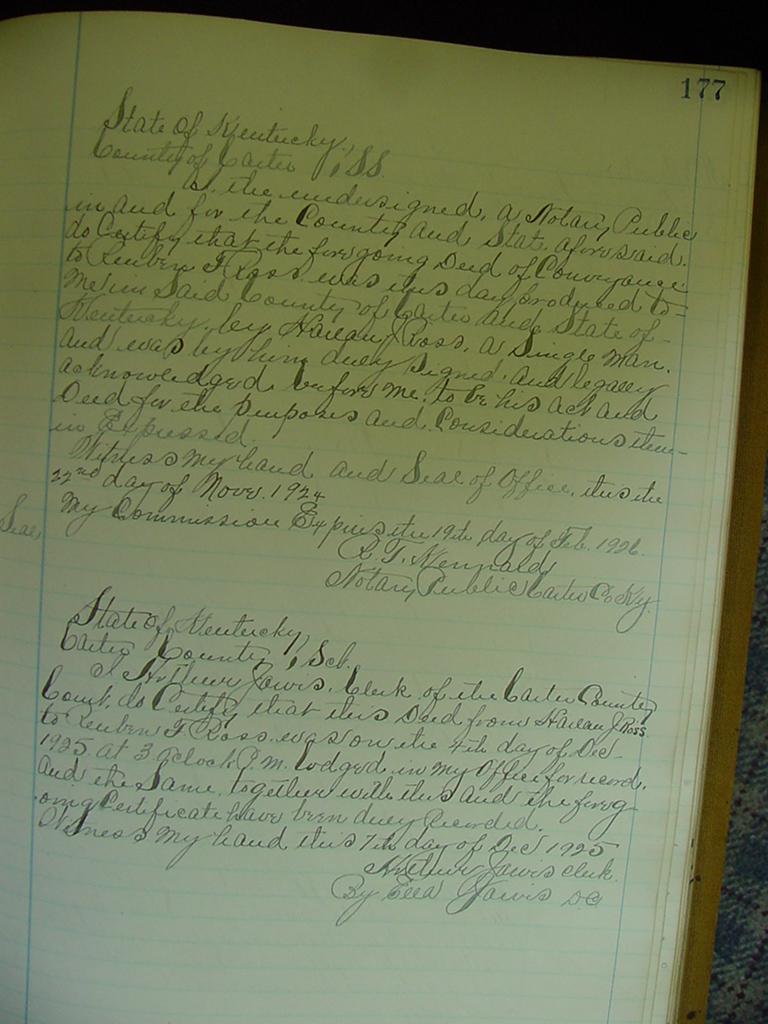 177
State of Kentucky,
County of Carter , SS.
I, the undersigned, a Notary Public
in and for the County and State aforesaid,
do Certify that the foregoing Deed of Conveyance
to Reuben F Ross was this day produced to-
me in Said County of Carter and State of-
Kentucky, by Harlan J Ross, a Single man,
and was by him duly Signed, and legally
acknowledged before me, to be his act and
Deed for the purposes and Considerations there-
in Expressed.
Witness my hand and Seal of Office, this the
22nd day of Nove. 1924
Seal, My Commission Expires the 19th day of Feb. 1926.
R. T. Kennard
Notary Public Carter Co Ky.
State of Kentucky,
Carter County , Sct.
I Arthur Jarvis, Clerk of the Carter County
Court, do Certify that this Deed from Harlan J Ross
to Reuben F Ross was on the 4th day of Dec
1925 at 3 oclock P.M. lodged in my Office for record,
and the Same together with this and the foreg-
oing Certificate have been duly Recorded.
Witness my hand this 7th day of Dec 1925
Arthur Jarvis Clerk.
By Ella Jarvis DC